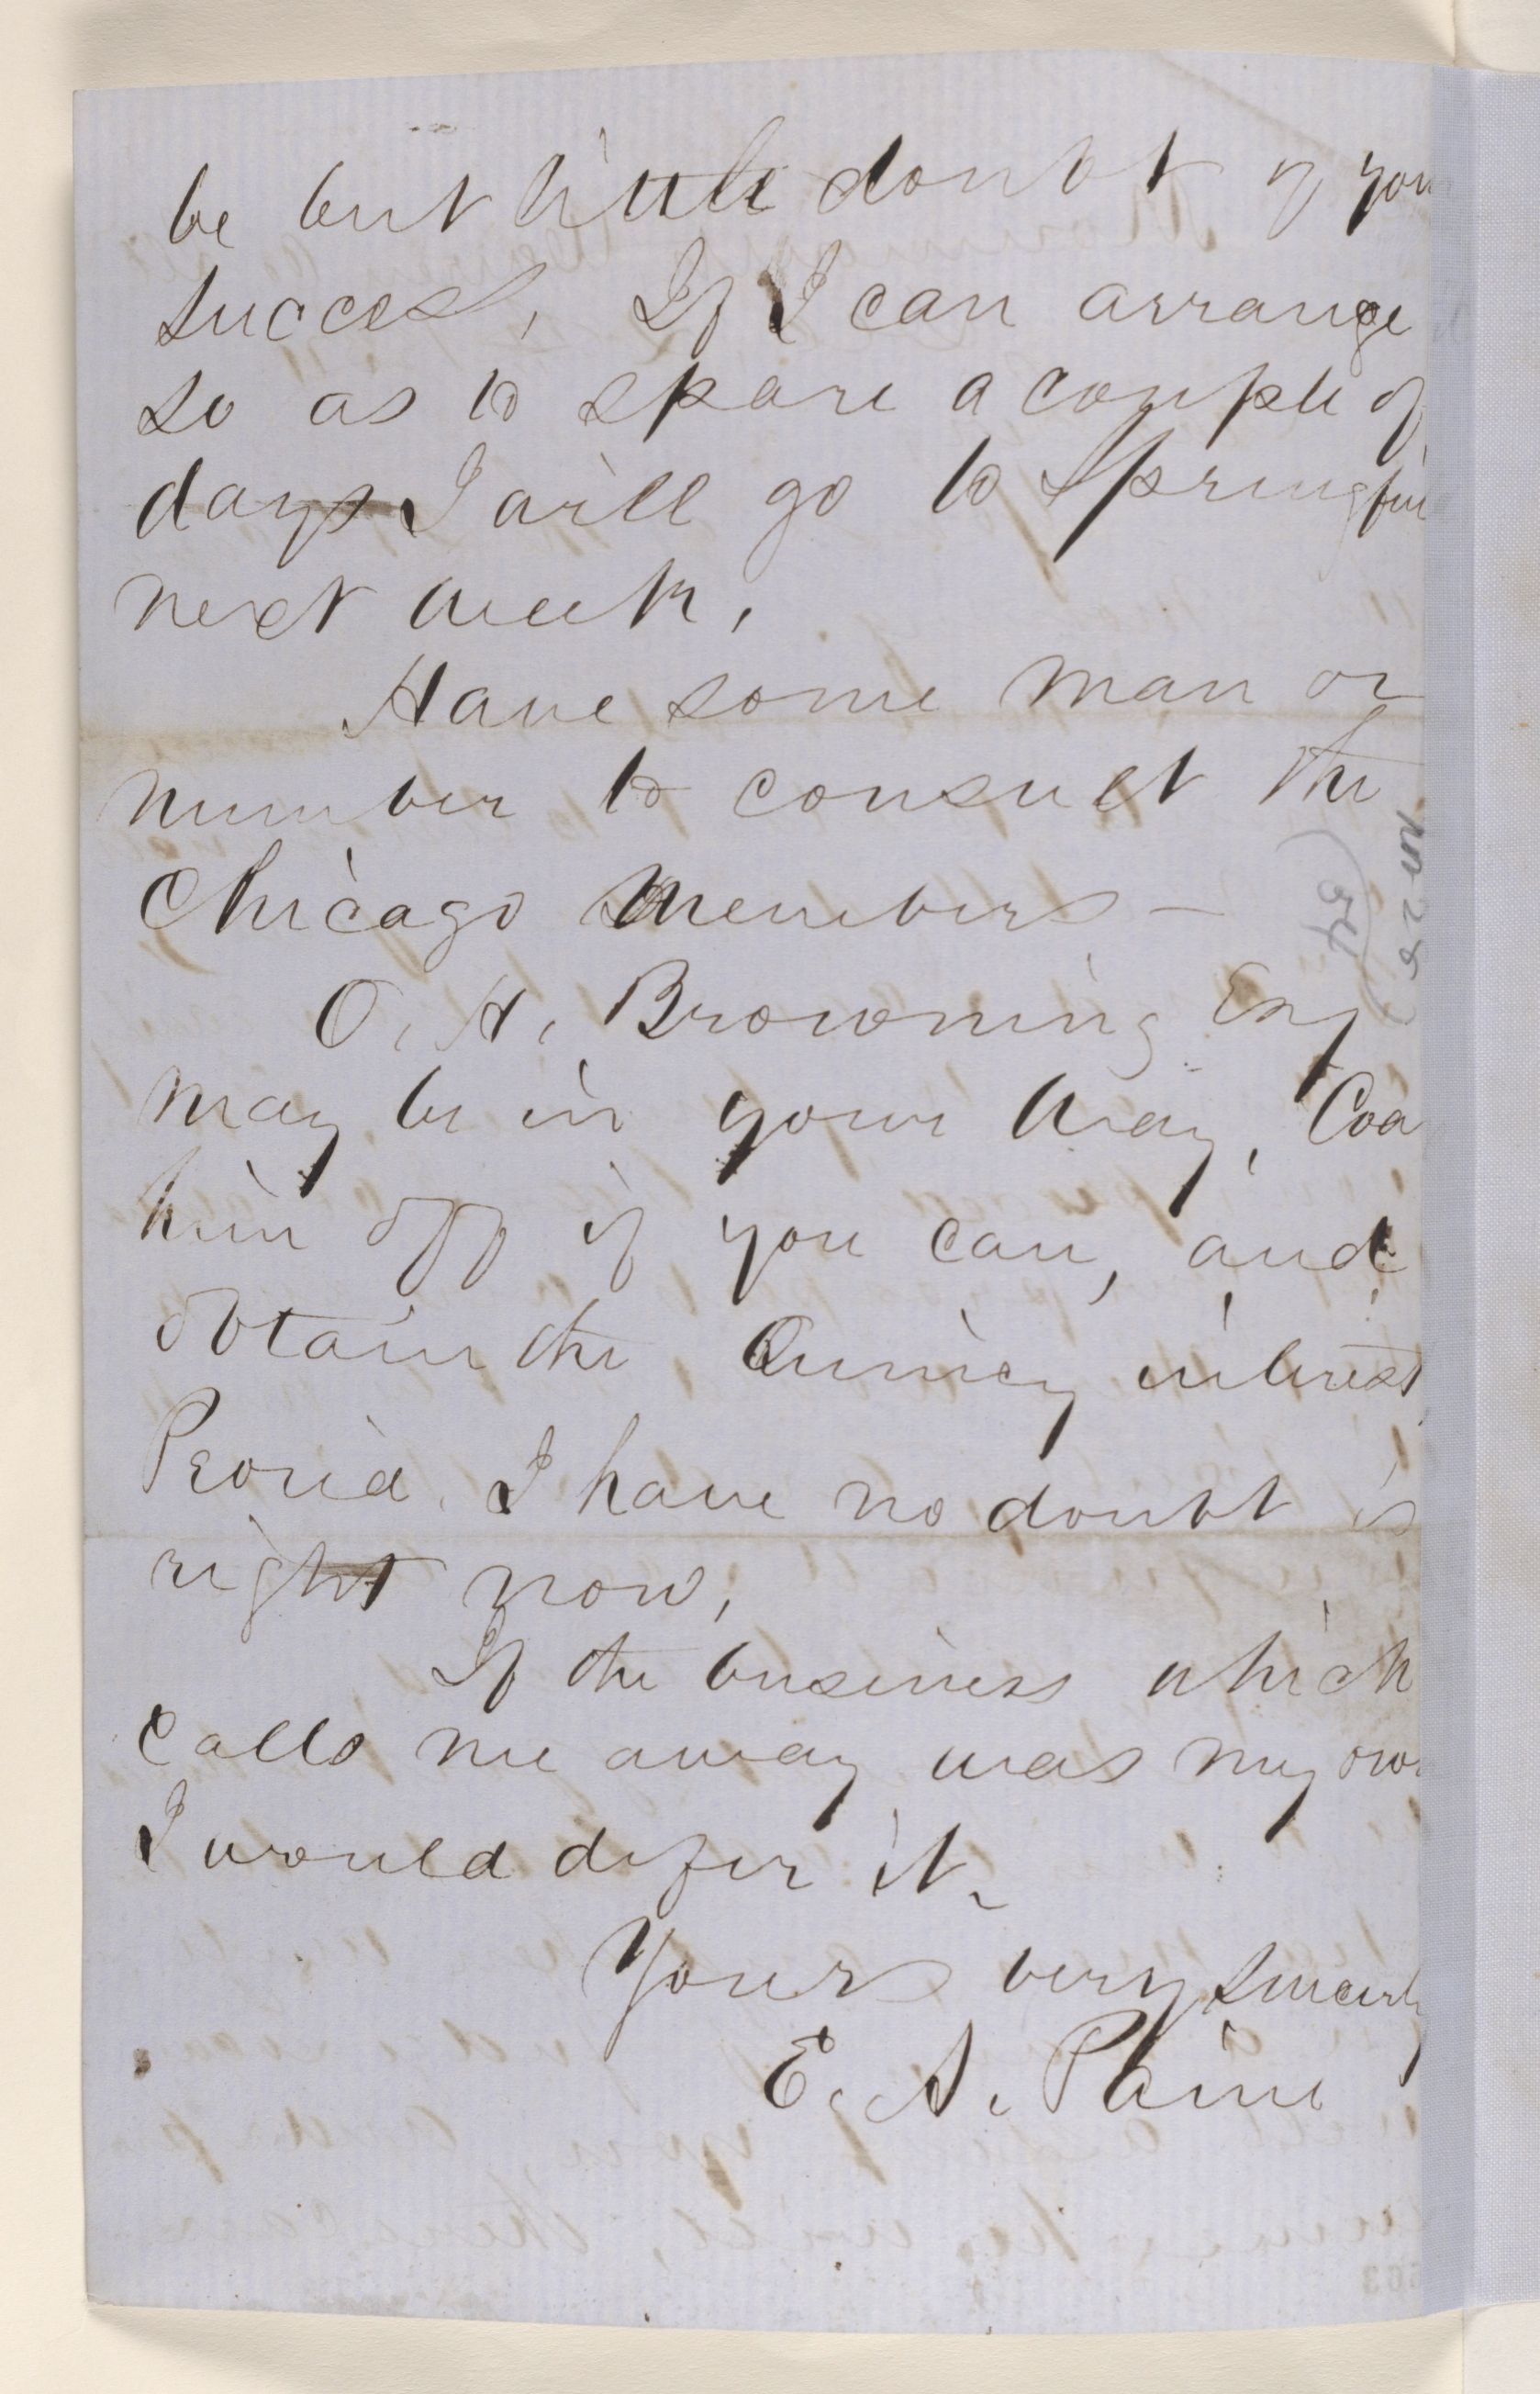 be but little doubt of you
success, If I can arrange
so as to spare a couple of
days I will go to Springfie
next week,
Have some man or
number to consult the
Chicago Members —
O. H. Browning Esq
may be in your way, Coa
him off if you can, and
obtain the Quincy interest,
Peoria, I have no doubt is
right now,
If the business which
calls me away was my ow
I would defer it.
Yours very sincerly
E. A. Paine